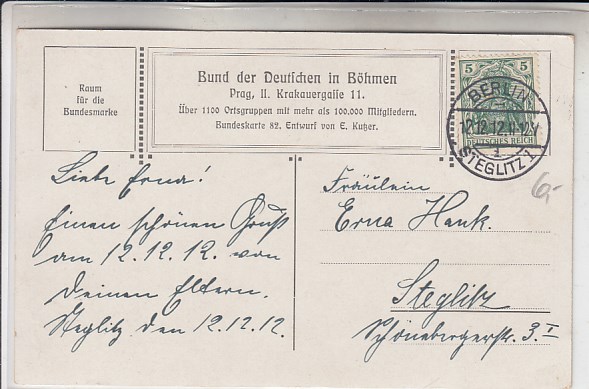 Raum
für die
Bundesmarke
Bund der Deutschen in Böhmen
Prag, II. Krakauergasse 11.
Über 1100 Ortsgruppen mit mehr als 100,000 Mitgliedern.
Bundeskarte 82. Entwurf von E. Kutzer.
5 5
DEUTSCHES REICH
BERLIN
12.12.12.11-12V
1
STEGLITZ 1
6,-
Liebe Erna!
Einen schönen Gruß
am 12.12.12. von
Deinen Eltern.
Steglitz den 12.12.12.
Fräulein
Erna Hank.
Steglitz
Schönebergerstr. 3.I